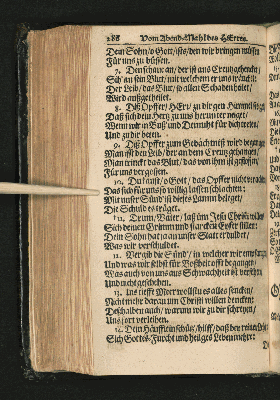 288 Vom Abend-Mahl des HErrn.
Dem Sohn / o Gott / ists / den wir bringen müssen
Für uns zu büssen.
7. Den schau an / der ist ans Creutz gehencket /
Sich an er sein Blut / mit welchem er uns träncket
Der Leib / das Blut / so allen Schaden heilet /
Wird ausgetheilet.
8. Diß Opffer / HErr / zu dir gen Himmel steiget
Daß sich dein Hertz zu uns herunter neiget /
Wenn wir in Buß und Demuht für dich treten /
Und zu dir beten.
9. Diß Opffer zum Gedächtniß wird begangen
Man isst den Leib / der an dem Creutz gehangen /
Man trincket das Blut / das von ihm ist geflossen /
Für uns vergossen.
10. Du kanst / o Gott / das Opffer nicht
Das sich für uns so willig lassen schlachten:
Mit unser Sünd ist dieses Lamm beleget /
Die Schuld es träget.
11. Drum / Vater / laß üm Jesu Christi willen
Sich deinen Grimm und starcken Eyfer stillen:
Dein Sohn hat ja an unser Statt erduldet /
Was wir verschuldet.
12. Vergib die Sünd / in welcher wir empfangen
Und was wir selbst für Boßheit offt begangen /
Was auch von uns aus Schwachheit ist versehn
Und nicht geschehen.
13. Ins tieffe Meer wollst du es alles sencken /
Nicht mehr daran um Christi willen dencken
Deshalben auch / warum wir zu dir schreyen /
Uns fort verleihen.
14. Dein Häufflein schütz / hilff / daß der reine
Sich Gottes-Furcht und heilges Leben mehre: